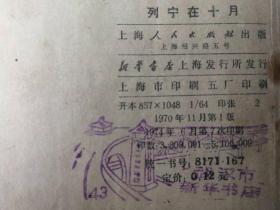 列宁在十月
上海人民出版社出版
上海绍兴路五号
新华书店上海发行所发行
上海市印刷五厂印刷
开本857×1048 1/64 印张 2
1970年11月第1版
1974年6月第7次印刷
印数:3,800,001—5,100,000
统一书号:8171·167
定价:0.12元
43
新华书店